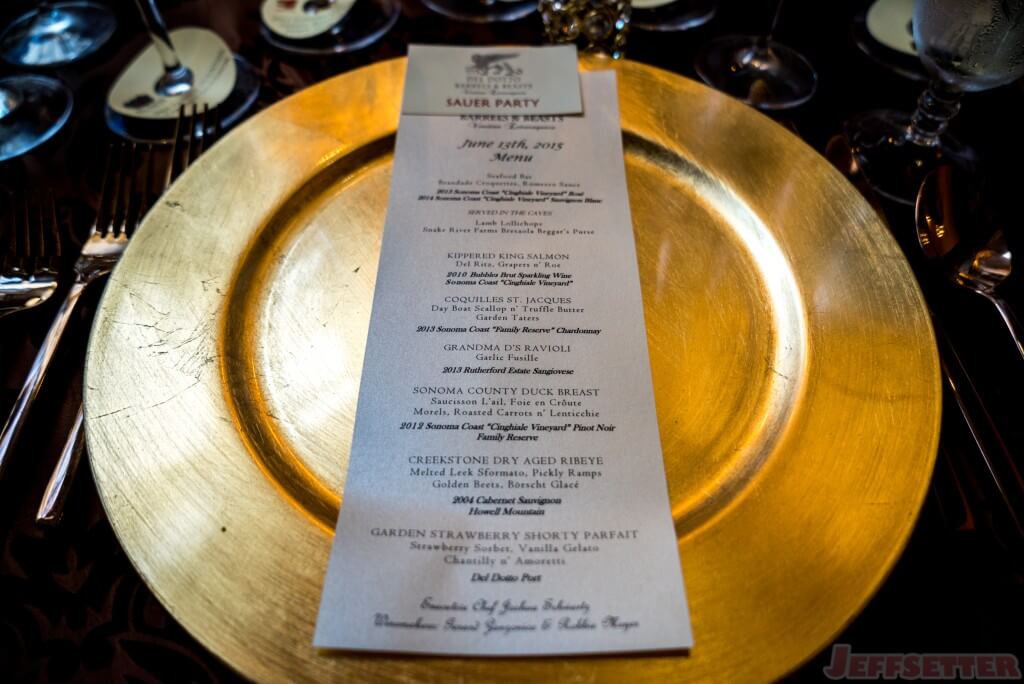 DEL DOTTO
BARRELS & BEASTS
Venetian Extravaganza
SAUER PARTY
BARRELS & BEASTS
Venetian Extravaganza
June 13th, 2015
Menu
Seafood Bar
Brandade Croquettes, Romesco Sauce
2013 Sonoma Coast "Cinghiale Vineyard" Rosé
2014 Sonoma Coast "Cinghiale Vineyard" Sauvignon Blanc
SERVED IN THE CAVES
Lamb Lollichops
Snake River Farms Bresaola Beggar's Purse
KIPPERED KING SALMON
Del Ritz, Grapers n' Roe
2010 Bubbles Brut Sparkling Wine
Sonoma Coast "Cinghiale Vineyard"
COQUILLES ST. JACQUES
Day Boat Scallop n' Truffle Butter
Garden Taters
2013 Sonoma Coast "Family Reserve" Chardonnay
GRANDMA D'S RAVIOLI
Garlic Fusille
2013 Rutherford Estate Sangiovese
SONOMA COUNTY DUCK BREAST
Saucisson L'ail, Foie en Crôute
Morels, Roasted Carrots n' Lenticchie
2012 Sonoma Coast "Cinghiale Vineyard" Pinot Noir
Family Reserve
CREEKSTONE DRY AGED RIBEYE
Melted Leek Sformato, Pickly Ramps
Golden Beets, Börscht Glacé
2004 Cabernet Sauvignon
Howell Mountain
GARDEN STRAWBERRY SHORTY PARFAIT
Strawberry Sorbet, Vanilla Gelato
Chantilly n' Amoretti
Del Dotto Port
Executive Chef Joshua Schwartz
Winemakers Gerard &
JEFFSETTER